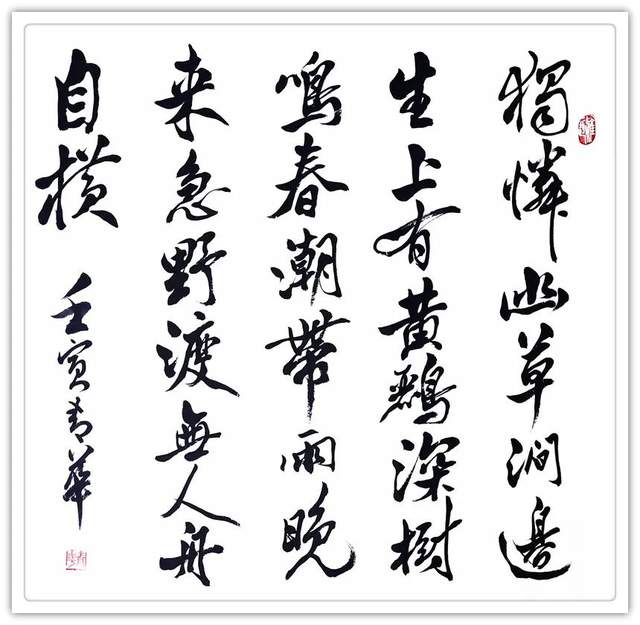 獨憐幽草澗邊
生上有黄鸝深樹
鳴春潮帶雨晚
来急野渡無人舟
自横
壬寅青華